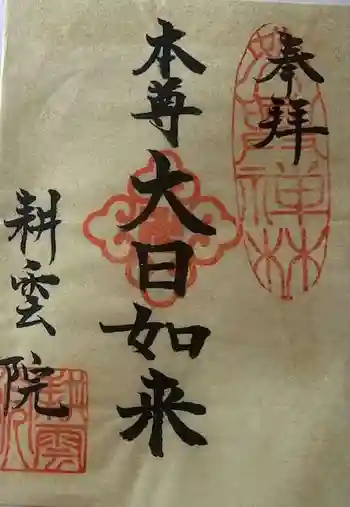 奉拝
本尊
大日如来
耕雲院
耕雲